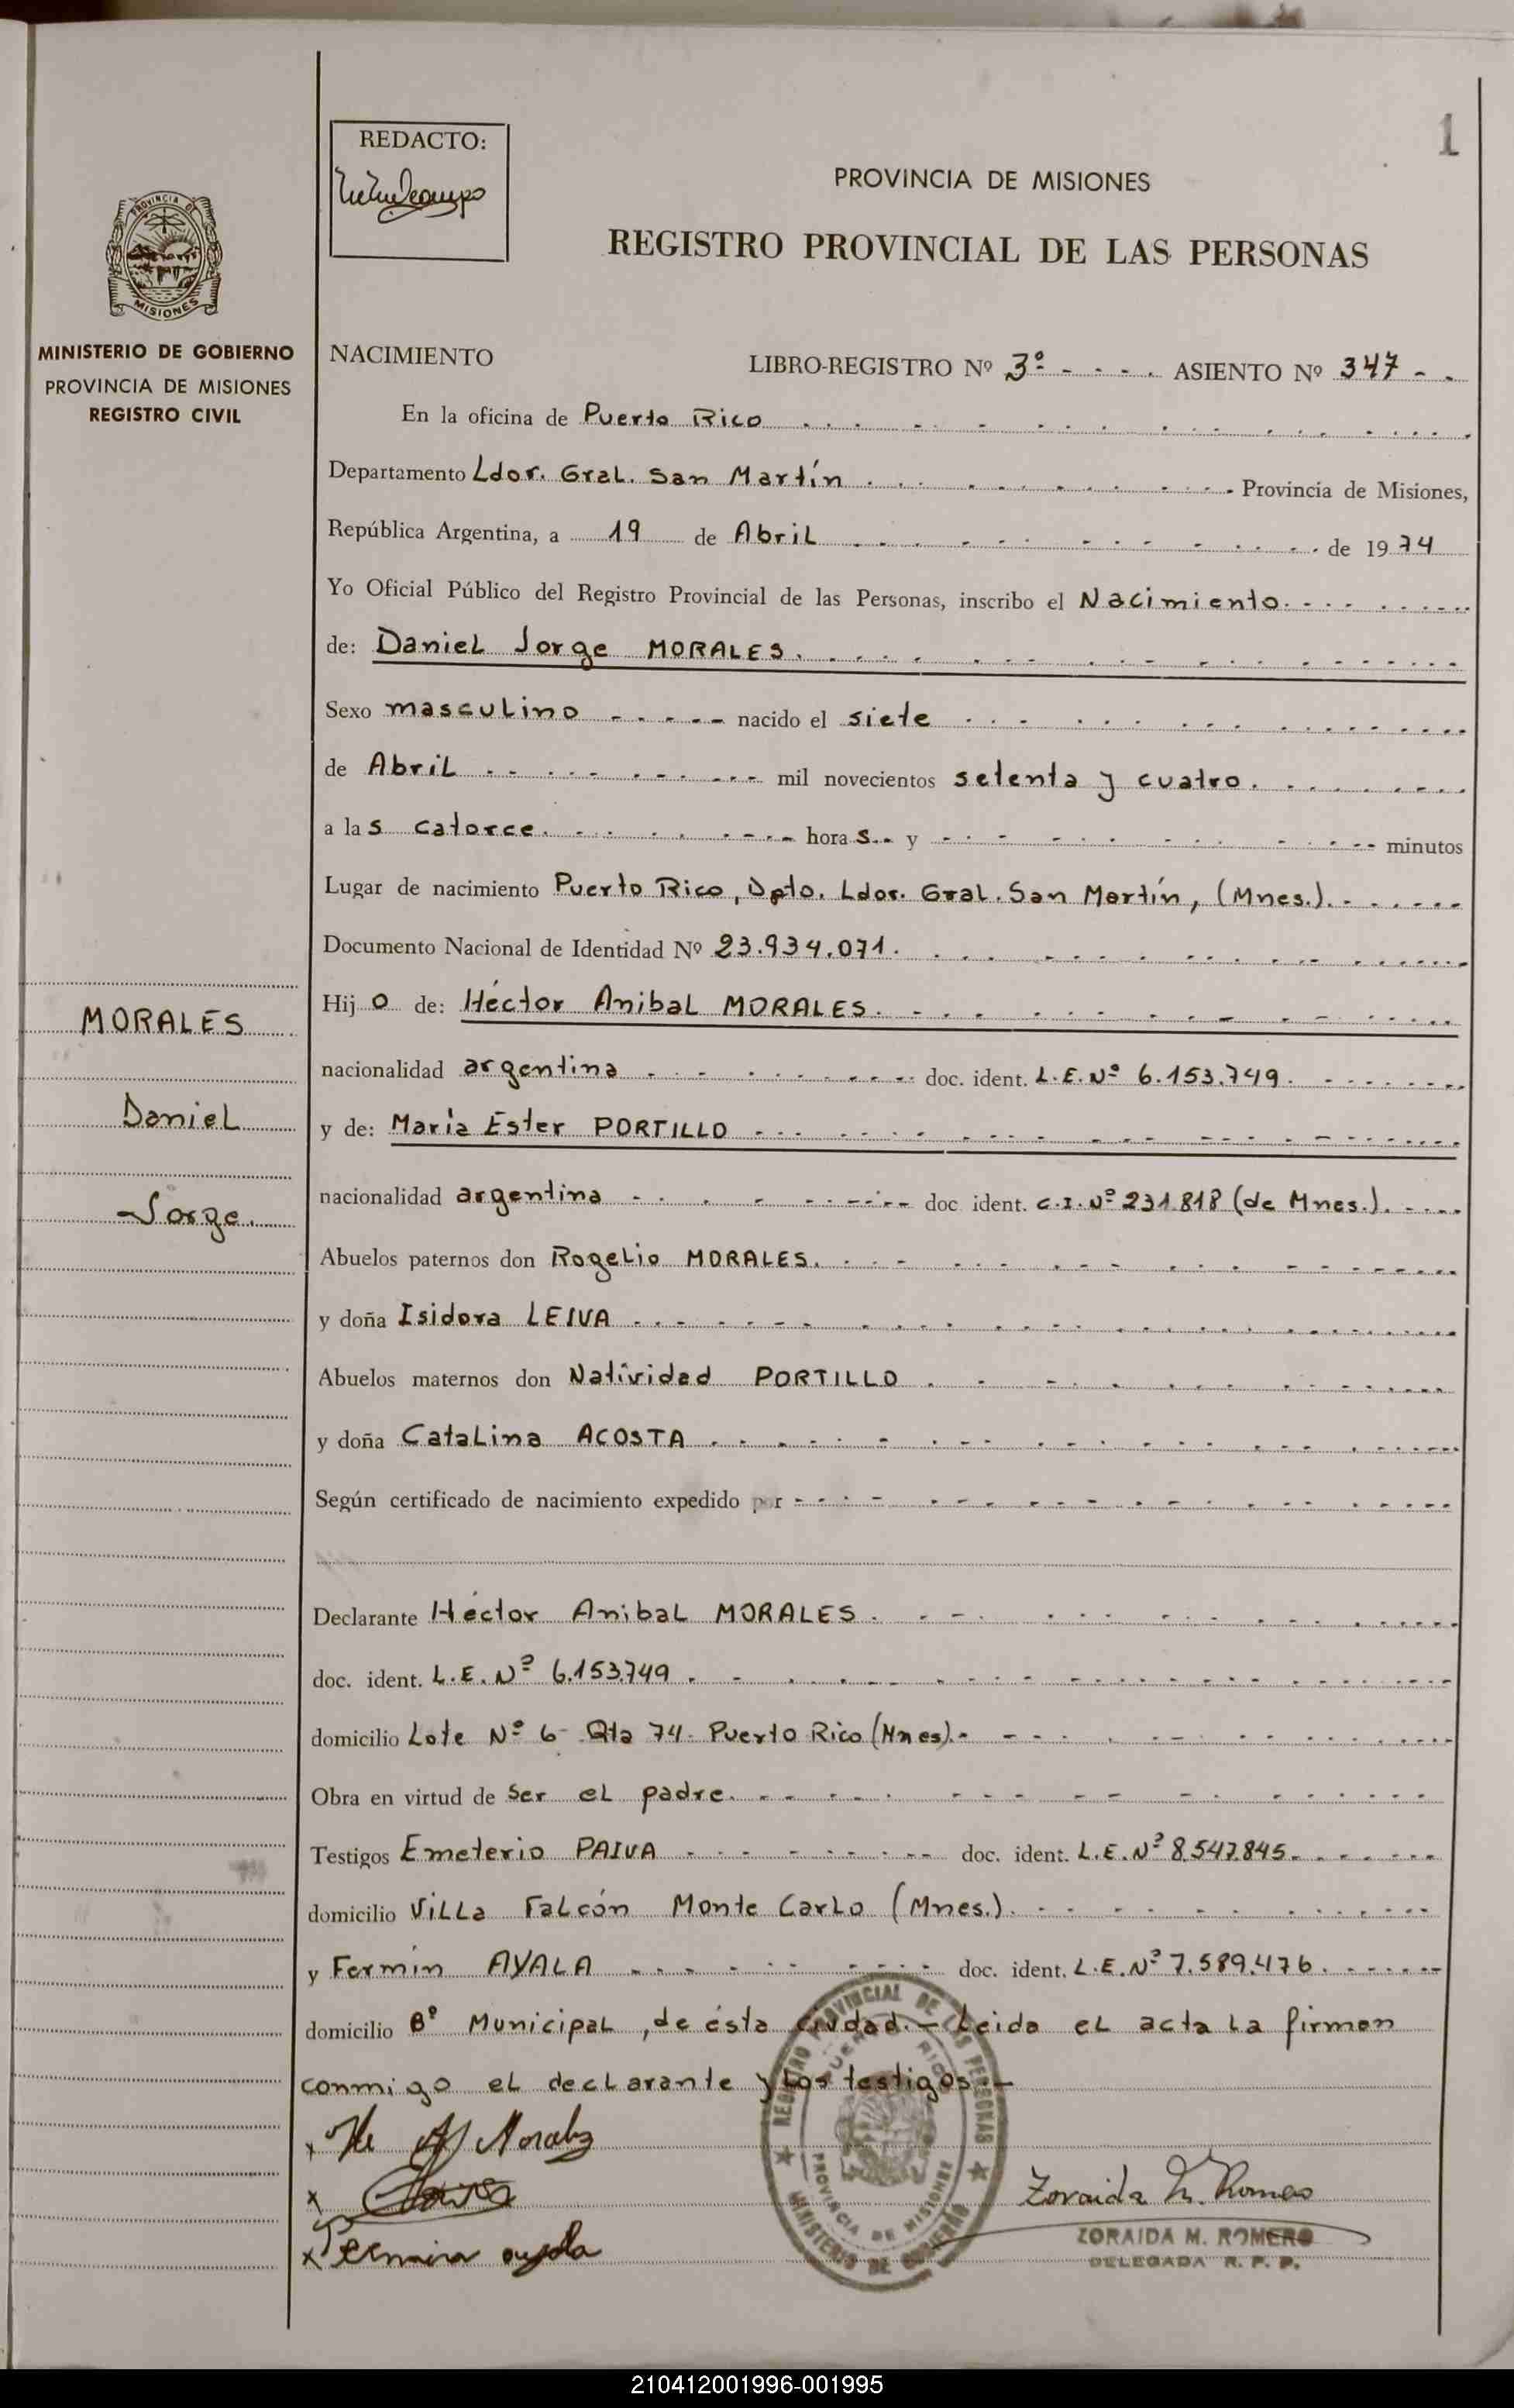 1
REDACTO:
PROVINCIA DE MISIONES
REGISTRO PROVINCIAL DE LAS PERSONAS
PROVINCIA DE
MISIONES
MINISTERIO DE GOBIERNO
PROVINCIA DE MISIONES
REGISTRO CIVIL
NACIMIENTO LIBRO-REGISTRO Nº 3º - - - . ASIENTO Nº 347 - -
En la oficina de Puerto Rico
Departamento Ldor. Gral. San Martín Provincia de Misiones,
República Argentina, a 19 de Abril de 1974
Yo Oficial Público del Registro Provincial de las Personas, inscribo el Nacimiento.
de: Daniel Jorge MORALES.
Sexo masculino nacido el siete
de Abril mil novecientos setenta y cuatro.
a las catorce. horas.- y minutos
Lugar de nacimiento Puerto Rico, Dpto. Ldor. Gral. San Martín, (Mnes.).
Documento Nacional de Identidad Nº 23.934.071.
Hijo de: Héctor Anibal MORALES.
nacionalidad argentina doc. ident. L.E.Nº 6.153.749.
y de: María Ester PORTILLO
nacionalidad argentina doc ident. C.I.Nº 231.818 (de Mnes.).
Abuelos paternos don Rogelio MORALES.
y doña Isidora LEIVA
Abuelos maternos don Natividad PORTILLO
y doña Catalina ACOSTA
Según certificado de nacimiento expedido por
Declarante Héctor Anibal MORALES.
doc. ident. L.E.Nº 6.153.749
domicilio Lote Nº 6- Qta 74- Puerto Rico (Mnes).-
Obra en virtud de ser el padre.
Testigos Emeterio PAIVA doc. ident. L.E.Nº 8.547.845.
domicilio Villa Falcón Monte Carlo (Mnes.).
y Fermín AYALA doc. ident. L.E.Nº 7.589.476.
domicilio Bº Municipal, de ésta ciudad.- Leida el acta la firman
conmigo el declarante y los testigos.-
MORALES
Daniel
Jorge.
Morales
Zoraida M. Romero
ZORAIDA M. ROMERO
DELEGADA R. P. P.
REGISTRO PROVINCIAL DE LAS PERSONAS
PUERTO RICO
PROVINCIA DE MISIONES
MINISTERIO DE GOBIERNO
210412001996-001995